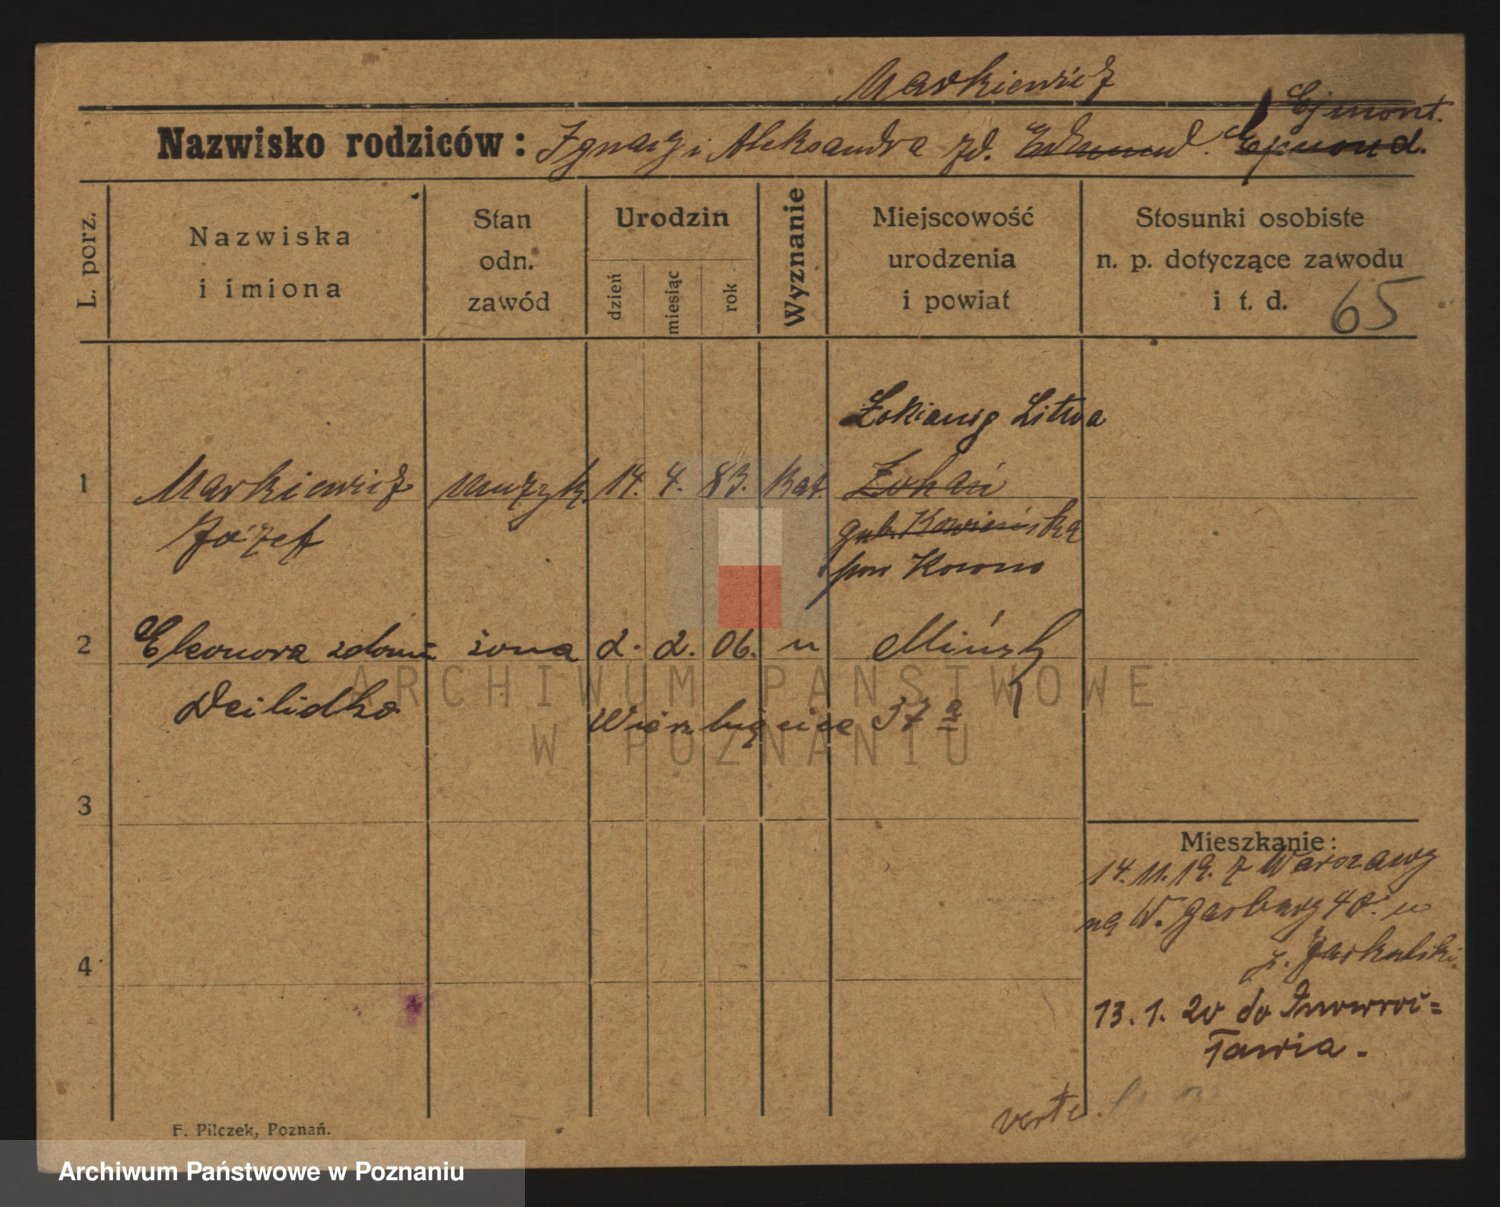 Markiewicz
Nazwisko rodziców: Ignacy i Aleksandra zd. Edmund. Ejmond.
Ejmont.
L. porz.
Nazwiska
i imiona
Stan
odn.
zawód
Urodzin
dzień
miesiąc
rok
Wyznanie
Miejscowość
urodzenia
i powiat
Stosunki osobiste
n. p. dotyczące zawodu
i t. d.
65
Litwa
1 Markiewicz muzyk. 14. 4. 83. kat.
Józef
gub. Kowieńska
pow Kowno
2 Eleonora zdomu żona 2. 2. 06. " Mińsk
Deilidko
Wierzbięcice 37a
3
Mieszkanie:
14. 11. 19. z Warszawy
na W. Garbary 40. u
4
13. 1. 20 do Inowroc=
ławia.
verte.
F. Pilczek, Poznań.
ARCHIWUM PAŃSTWOWE
W POZNANIU
Archiwum Państwowe w Poznaniu